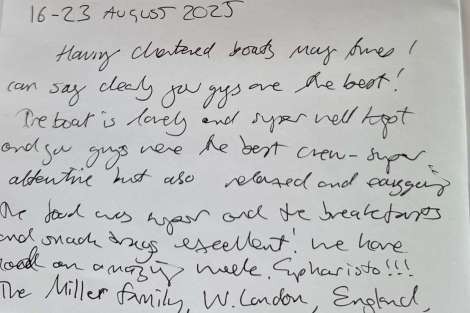 16-23 AUGUST 2025
Having chartered boats many times I
can say clearly you guys are the best!
The boat is lovely and super well kept
and you guys were the best crew - super
attentive but also relaxed and easygoing
The food was super and the breakfasts
and snack trays excellent! We have
had an amazing week. Epharisto!!!
The Miller family, W. London, England,